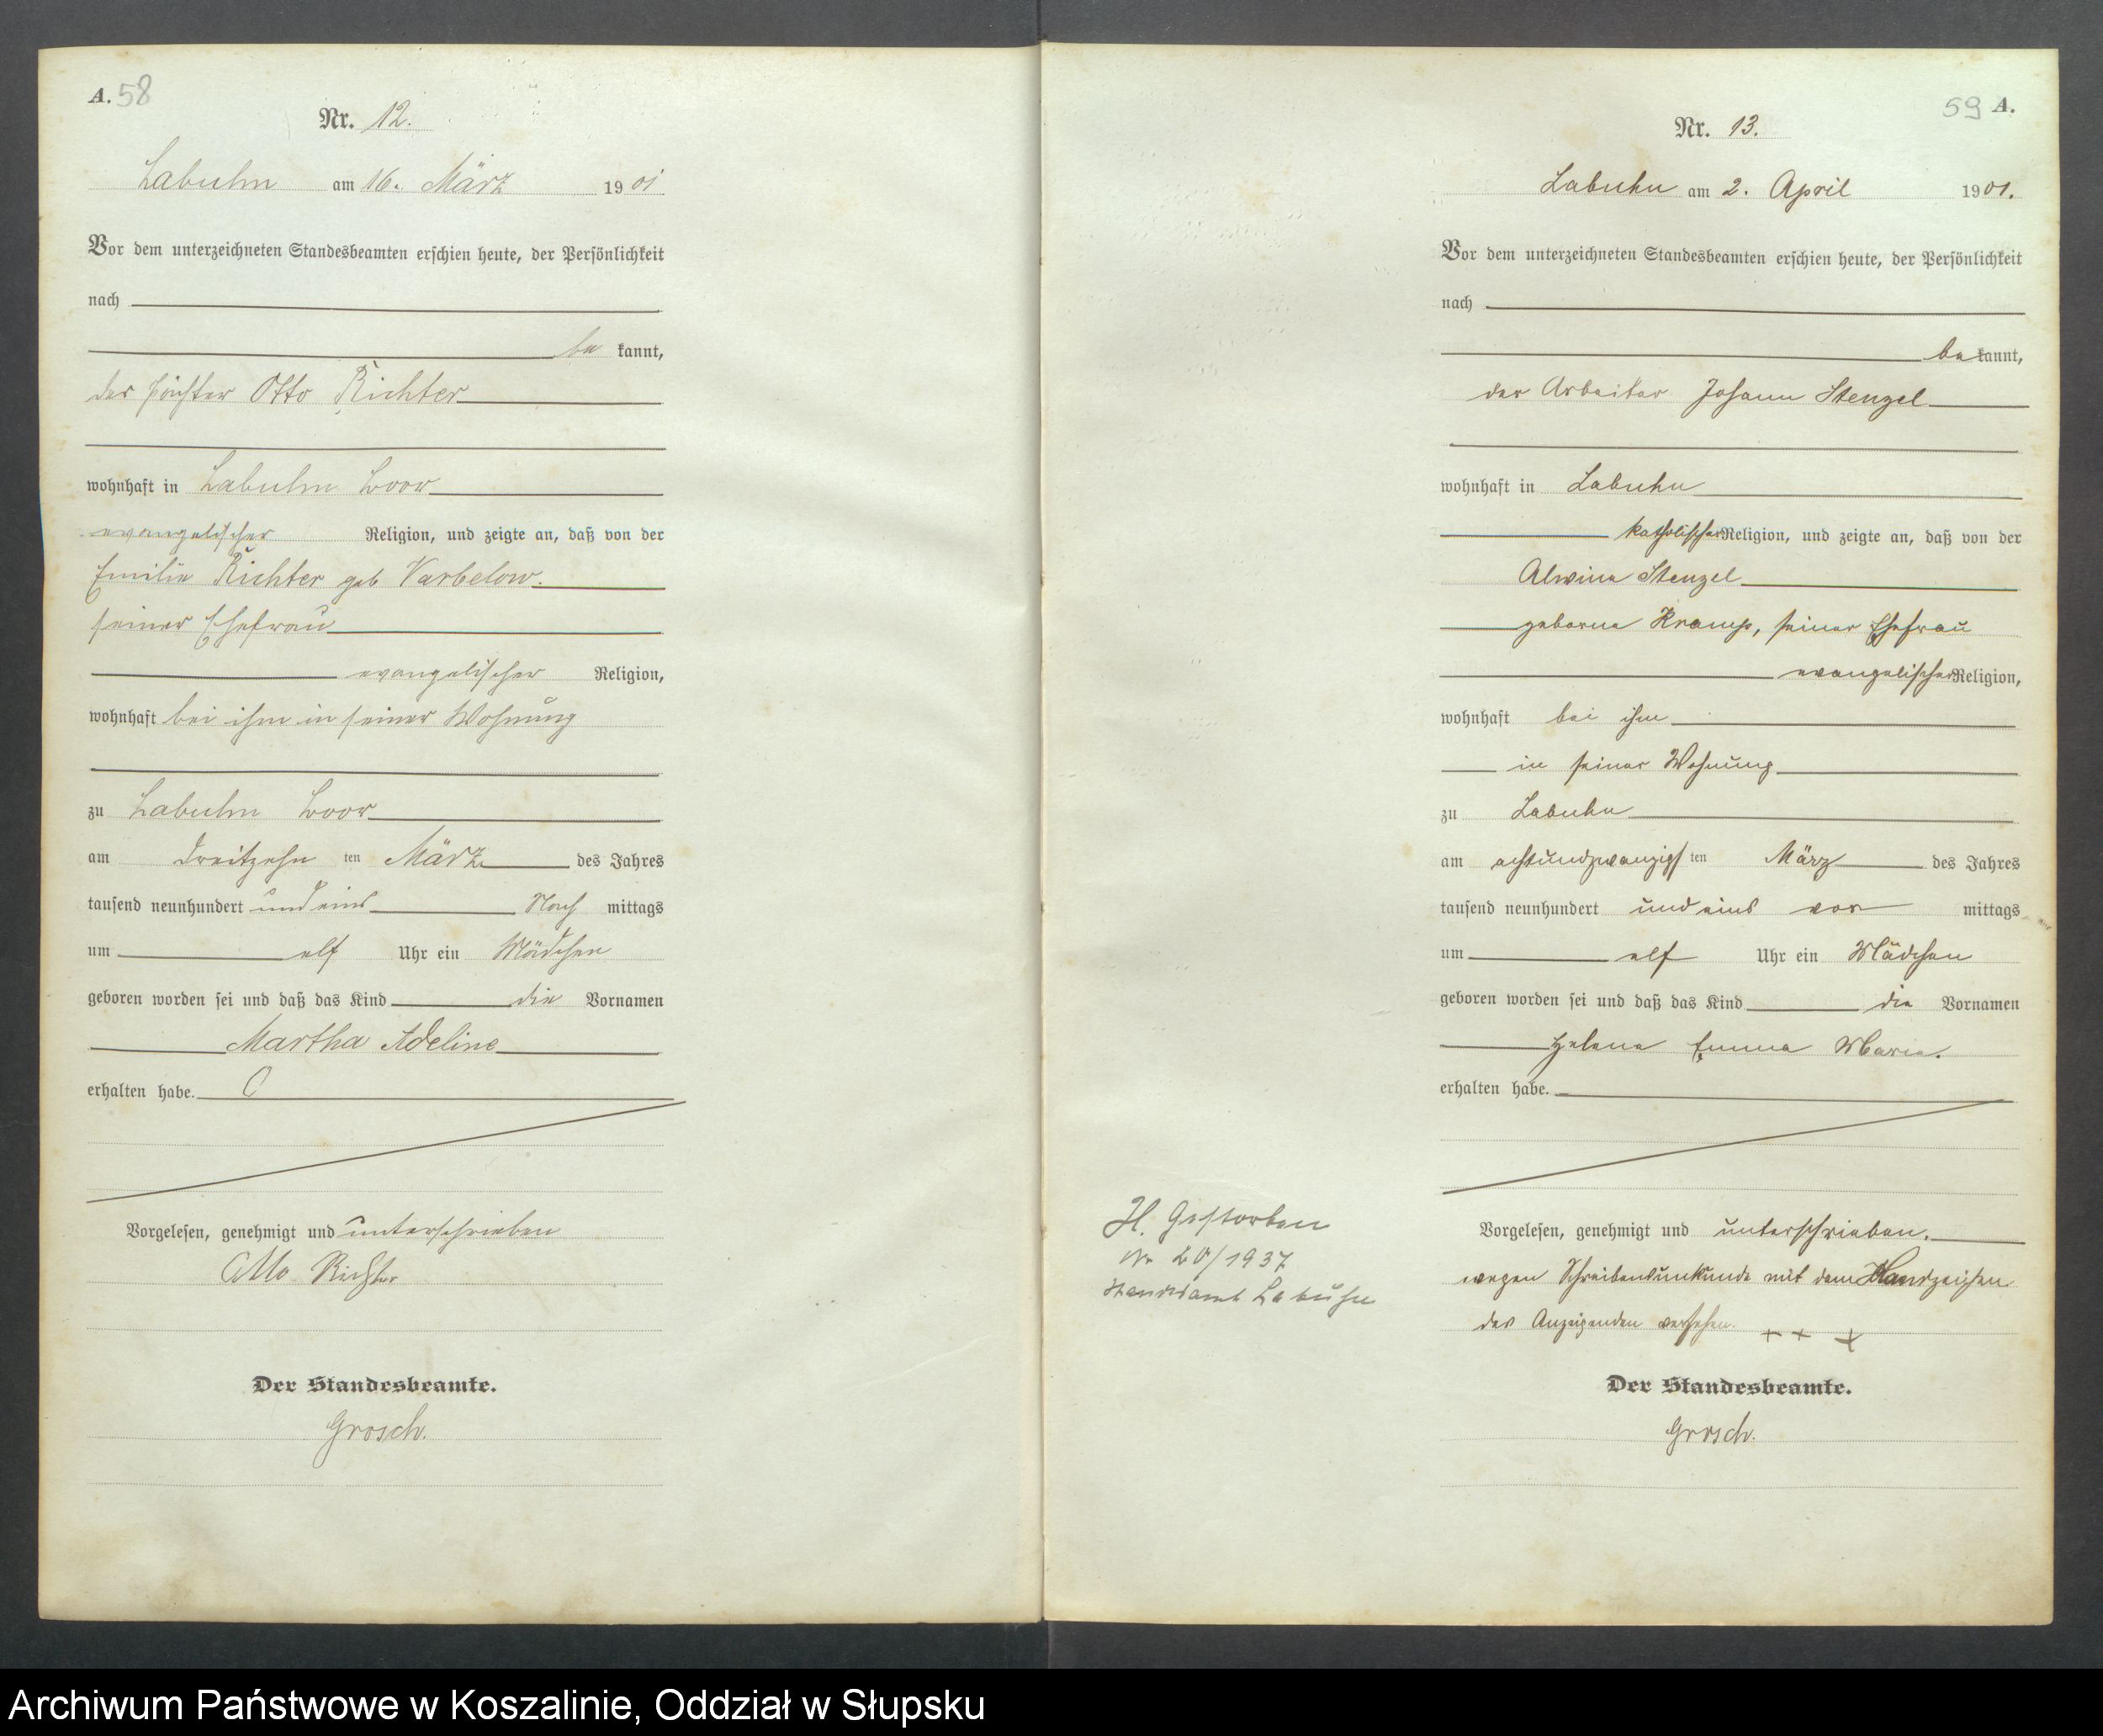 A. 58
Nr. 12.
Labuhn am 16. März 1901
Vor dem unterzeichneten Standesbeamten erschien heute, der Persönlichkeit
nach
be kannt,
der Förster Otto Richter
wohnhaft in Labuhn
evangelischer Religion, und zeigte an, daß von der
Emilie Richter geb Varbelow.
seiner Ehefrau
evangelischer Religion,
wohnhaft bei ihm in seiner Wohnung
zu Labuhn
am dreizehn ten März des Jahres
tausend neunhundert und eins Nach mittags
um elf Uhr ein Mädchen
geboren worden sei und daß das Kind die Vornamen
Martha Adeline
erhalten habe.
Vorgelesen, genehmigt und unterschrieben
Otto Richter
Der Standesbeamte.
Grosch.
59 A.
Nr. 13.
Labuhn am 2. April 1901.
Vor dem unterzeichneten Standesbeamten erschien heute, der Persönlichkeit
nach
be kannt,
der Arbeiter Johann Stenzel
wohnhaft in Labuhn
katholischer Religion, und zeigte an, daß von der
Alwine Stenzel
geborne Kramp, seiner Ehefrau
evangelischer Religion,
wohnhaft bei ihm
in seiner Wohnung
zu Labuhn
am achtundzwanzigs ten März des Jahres
tausend neunhundert und eins vor mittags
um elf Uhr ein Mädchen
geboren worden sei und daß das Kind die Vornamen
Helene Emma Marie.
erhalten habe.
H. Gestorben
Nr 20/1937
Standesamt Labuhn
Vorgelesen, genehmigt und unterschrieben.
wegen Schreibensunkunde mit dem Handzeichen
des Anzeigenden versehen. + + +
Der Standesbeamte.
Grosch.
Archiwum Państwowe w Koszalinie, Oddział w Słupsku